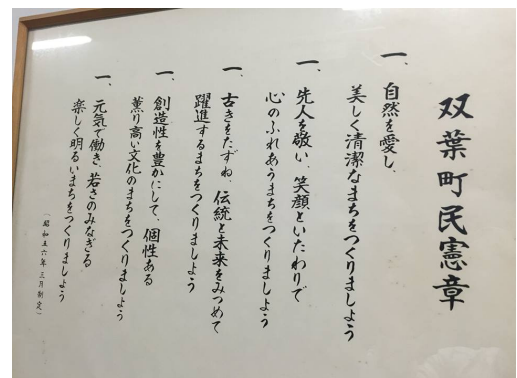 双葉町民憲章
一、自然を愛し、
美しく清潔なまちをつくりましょう
一、先人を敬い、笑顔といたわりで
心のふれあうまちをつくりましょう
一、古きをたずね、伝統と未来をみつめて
躍進するまちをつくりましょう
一、創造性を豊かにして、個性ある
薫り高い文化のまちをつくりましょう
一、元気で働き、若さのみなぎる
楽しく明るいまちをつくりましょう
（昭和五六年三月制定）